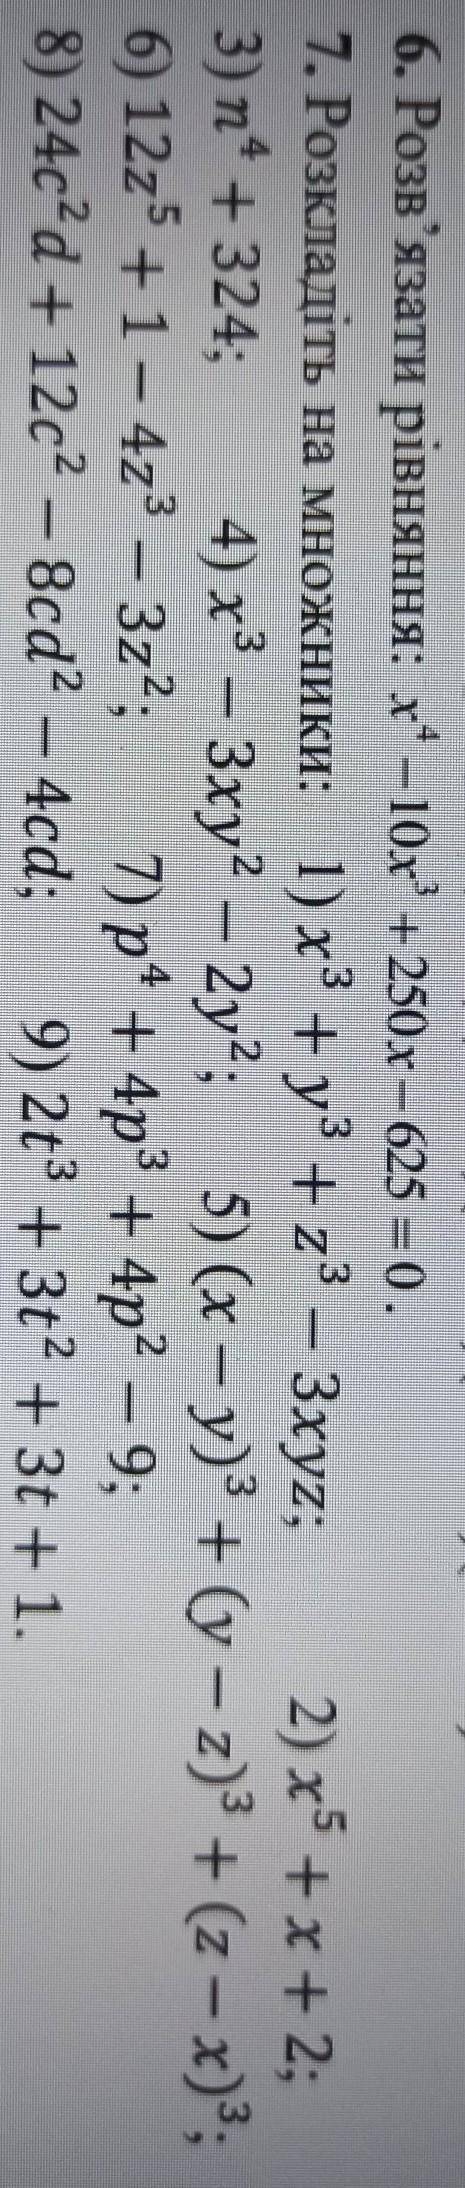 6. Розв’язати рівняння: x⁴ – 10x³ + 250x – 625 = 0 .
7. Розкладіть на множники: 1) x³ + y³ + z³ – 3xyz; 2) x⁵ + x + 2;
3) n⁴ + 324; 4) x³ – 3xy² – 2y²; 5) (x – y)³ + (y – z)³ + (z – x)³;
6) 12z⁵ + 1 – 4z³ – 3z²; 7) p⁴ + 4p³ + 4p² – 9;
8) 24c²d + 12c² – 8cd² – 4cd; 9) 2t³ + 3t² + 3t + 1.